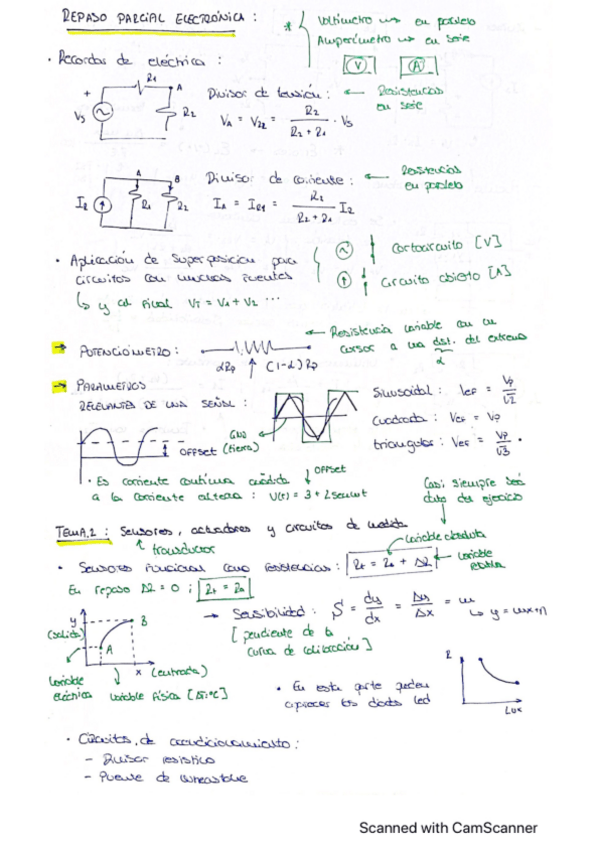 REPASO PARCIAL ELECTRÓNICA :
* Voltímetro → en paralelo
Amperímetro → en serie
V A
· Recordar de eléctrica :
R1 A
+
Vs R2
Divisor de tensión : ← Resistencias en serie
VA = VR2 = R2 / R2 + R1 · Vs
A B
I2 R1 R2
Divisor de corriente : ← Resistencias en paralelo
IA = IR1 = R2 / R2 + R1 I2
· Aplicación de Superposición para
circuitos con muchas fuentes
↳ y al final VT = V1 + V2 ...
Cortocircuito [V]
Circuito abierto [A]
→ POTENCIÓMETRO :
αRp (1-α)Rp
← Resistencia variable con un
cursor a una dist. del extremo
α
→ PARÁMETROS
RELEVANTES DE UNA SEÑAL :
OFFSET
GND
(tierra)
Sinusoidal : Vef = Vp/√2
cuadrada : Vef = Vp
triangular : Vef = Vp/√3 ·
· Es corriente continua añadida
a la corriente alterna : V(t) = 3 + 2senωt
OFFSET
Casi siempre será
dato del ejercicio
TEMA.2 : Sensores, actuadores y circuitos de medida
↑ transductor
Variable absoluta
· Sensores funcionan como resistencias : RT = R0 + ΔR ← Variable
En reposo ΔR = 0 ; RT = R0
y
(salida)
B
A
x (entrada)
Variable
eléctrica
Variable física [Δ↑ºC]
→ Sensibilidad : S = dy/dx = Δy/Δx = m
↳ y = mx+n
[ pendiente de la
curva de calibración ]
· En esta parte pueden
aparecer los diodos led
R
Lux
· Circuitos de acondicionamiento :
- Divisor resistivo
- Puente de wheatstone
Scanned with CamScanner